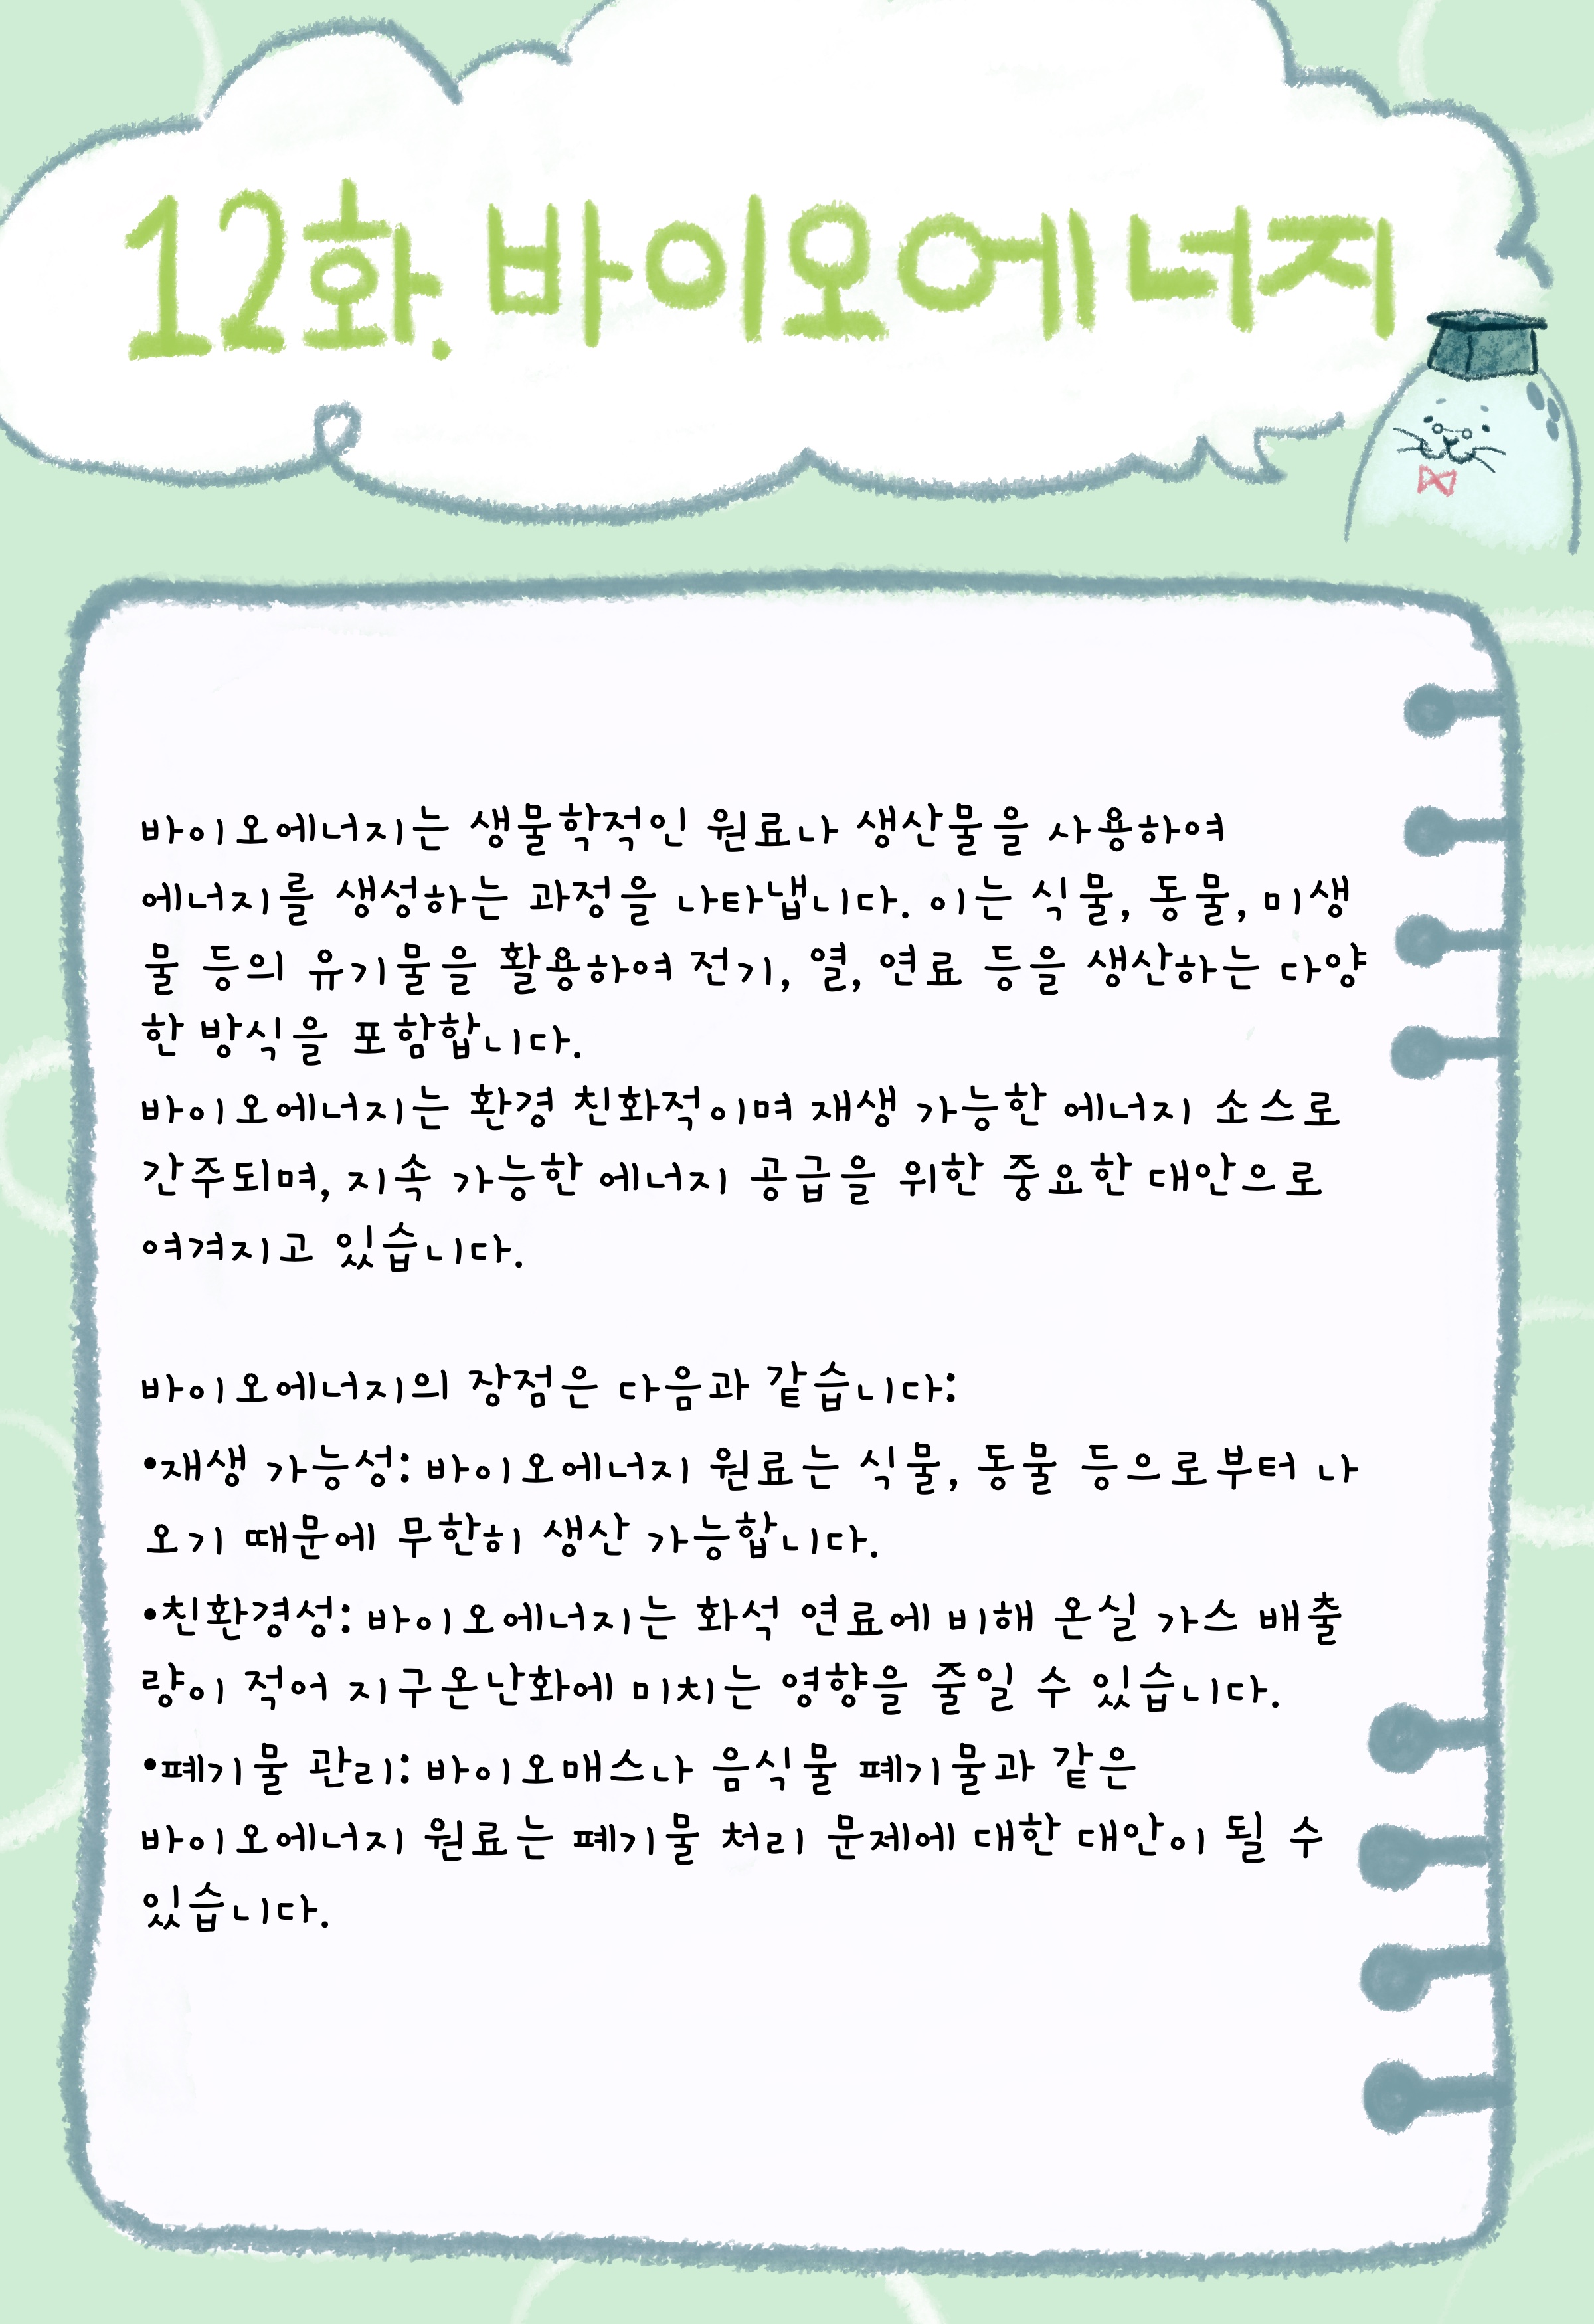 12화. 바이오에너지
바이오에너지는 생물학적인 원료나 생산물을 사용하여
에너지를 생성하는 과정을 나타냅니다. 이는 식물, 동물, 미생
물 등의 유기물을 활용하여 전기, 열, 연료 등을 생산하는 다양
한 방식을 포함합니다.
바이오에너지는 환경 친화적이며 재생 가능한 에너지 소스로
간주되며, 지속 가능한 에너지 공급을 위한 중요한 대안으로
여겨지고 있습니다.
바이오에너지의 장점은 다음과 같습니다:
•재생 가능성: 바이오에너지 원료는 식물, 동물 등으로부터 나
오기 때문에 무한히 생산 가능합니다.
•친환경성: 바이오에너지는 화석 연료에 비해 온실 가스 배출
량이 적어 지구온난화에 미치는 영향을 줄일 수 있습니다.
•폐기물 관리: 바이오매스나 음식물 폐기물과 같은
바이오에너지 원료는 폐기물 처리 문제에 대한 대안이 될 수
있습니다.